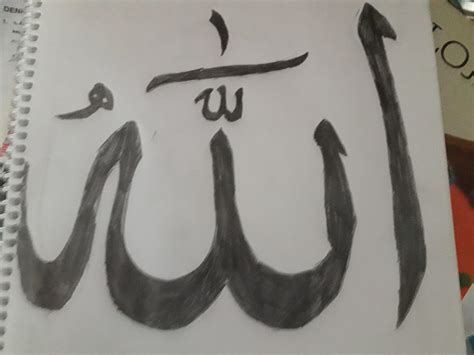 اللّٰهُ